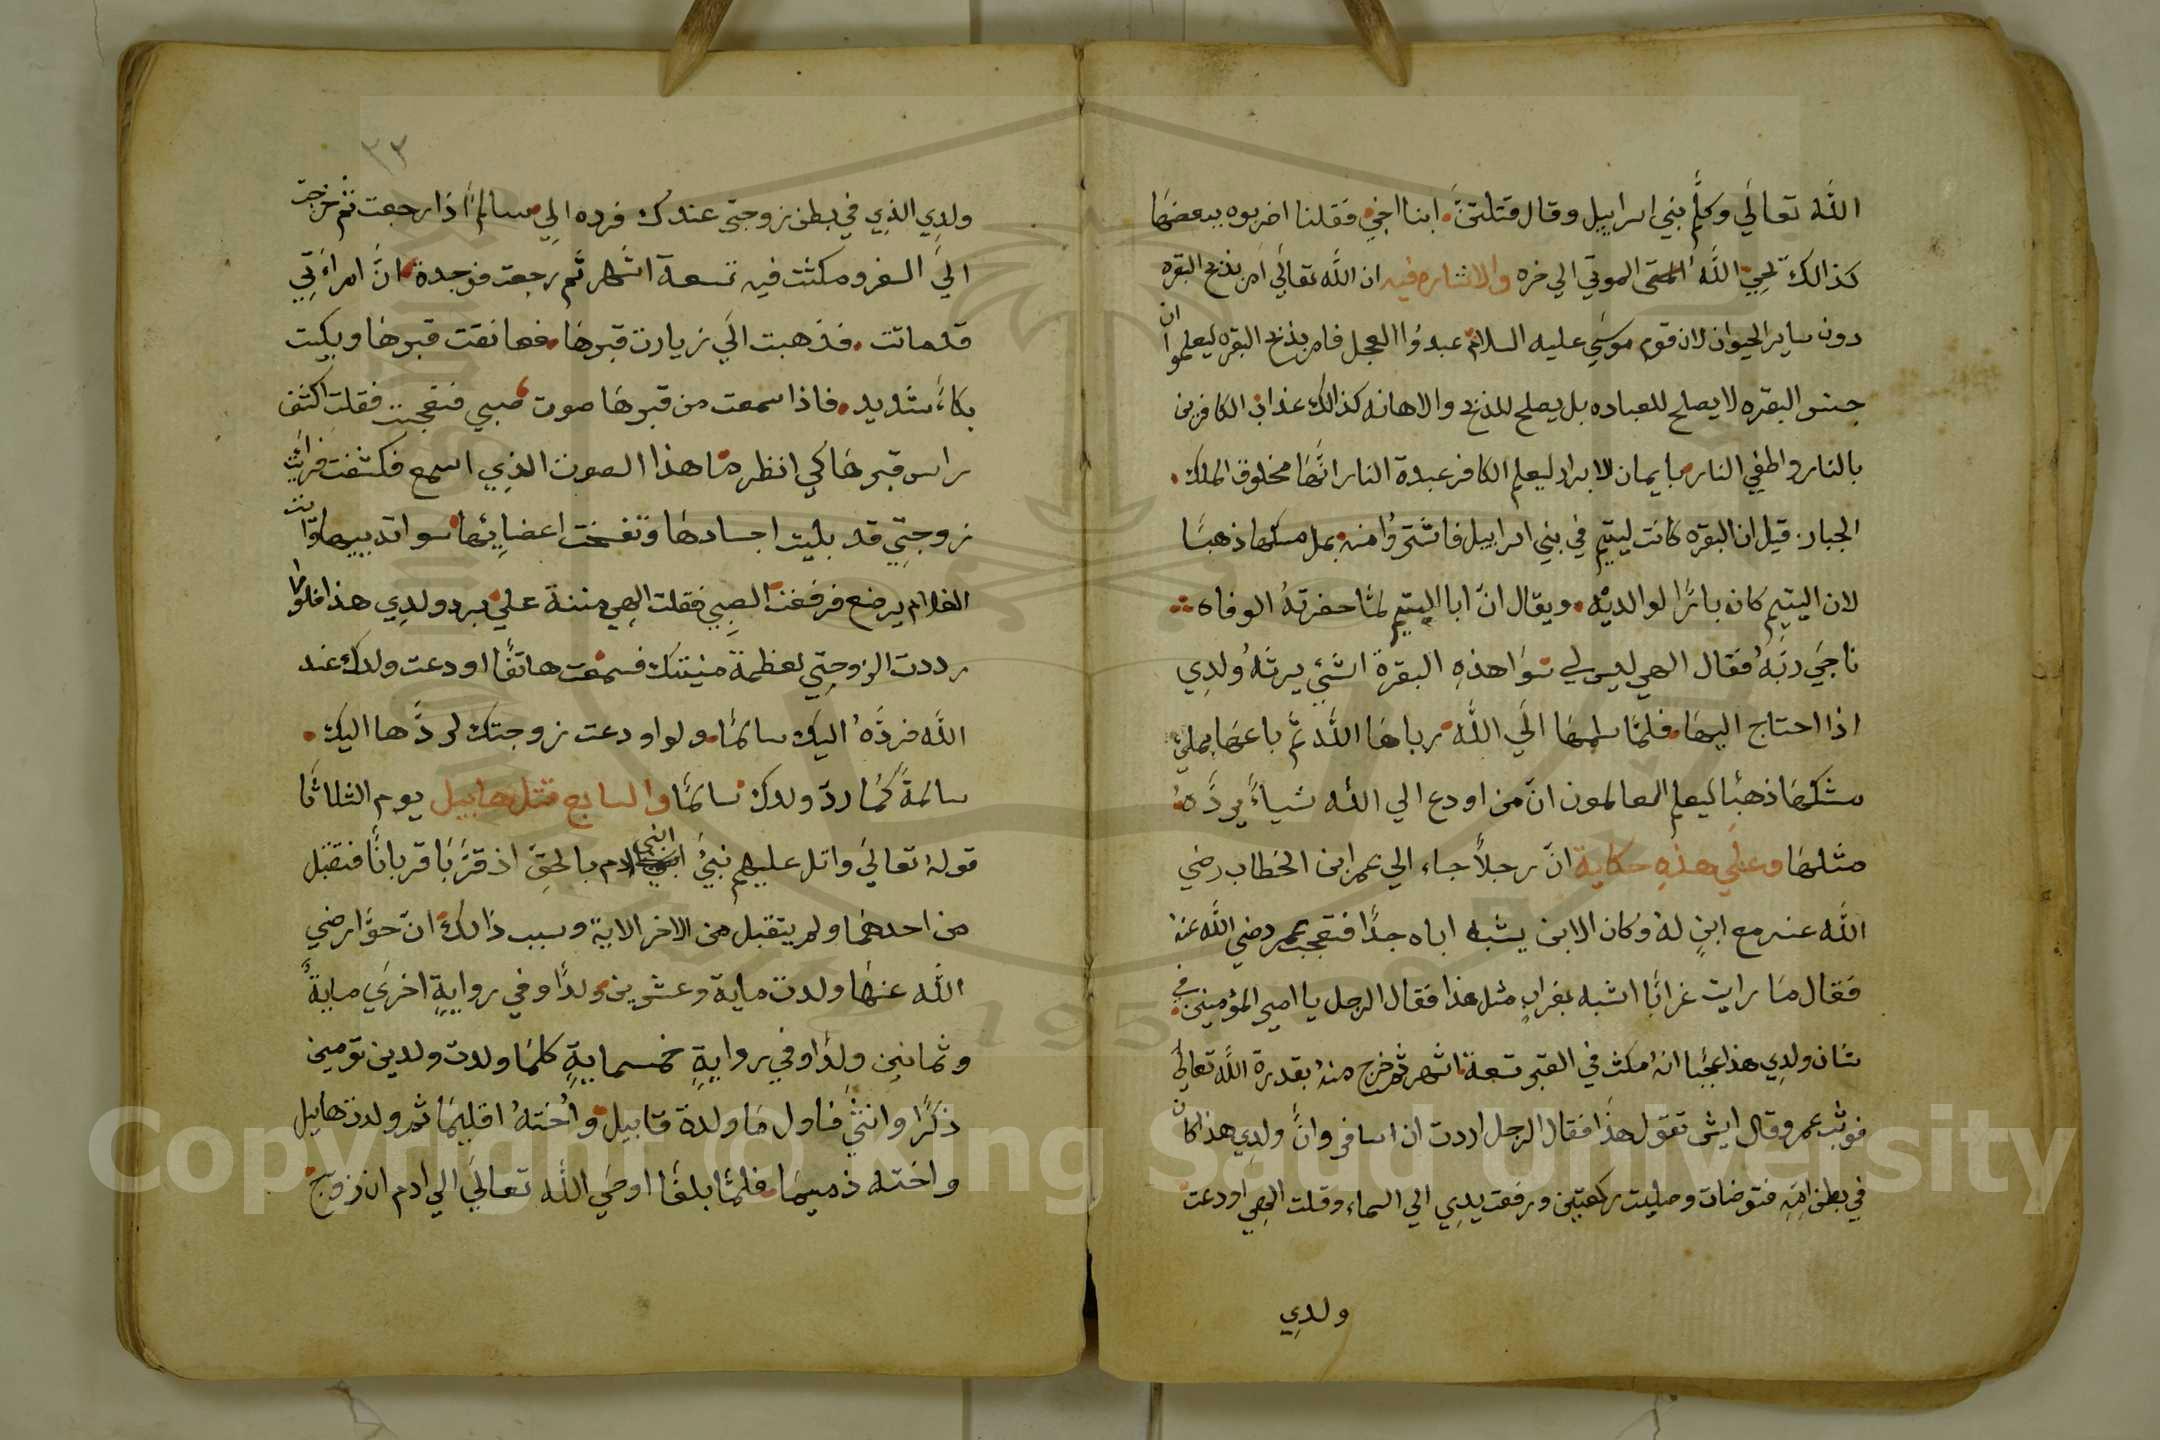 الله تعالي وكلّم بني اسراييل وقال قتلتني ابنا اخي فقلنا اضربوه ببعضها
كذالك يحيي الله الموتي الي خره والاشاره فيه ان الله تعالي امر بذبح البقره
دون ساير الحيوان لان قوم موسي عليه السلام عبدوا العجل فامر بذبح البقره ليعلموا ان
جنس البقره لا يصلح للعباده بل يصلح للذبح والاهانه كذالك عذاب الكافرين
بالنار واطفي النار بايمان الابرار ليعلم الكافر عبدة النار انّها مخلوق الملك
الجبار قيل ان البقره كانت ليتيم في بني اسراييل فاشتروا منه بمل مسكها ذهبًا
لان اليتيم كان بارًا لوالديه ويقال انّ ابا اليتيم لمّا حضرتهُ الوفاه
ناجي ربّهُ فقال الهي ليس لي سوا هذهِ البقرة الشّي يرثهُ ولدِي
اذا احتاج اليها فلمّا سلمها الَي الله رباها اللّه ثم باعها بملي
مسكها ذهبًا ليعلم العالمون انّ من اودع الي الله شياءً يردّهُ
مثلها وعلي هذهِ حكاية انّ رجلاً جاء الي عمر ابن الخطاب رضي
الله عنه مع ابنٍ لهُ وكان الابن يشبه اباه جدًّا فتعجب عمر رضي الله عنهُ
فقال ما رايت غرابًا اشبه بغرابٍ مثل هذا فقال الرجل يا امير المؤمنين في
شان ولدِي هذا عجبًا انهُ مكث في القبر تسعة اشهر ثم خرج منهُ بقدرة اللّه تعالي
فوثب عمر وقال ايش تقول هذا فقال الرجل اردت ان اسافر وانّ ولدِي هذا كان
في بطن امّهِ فتوضات وصليت ركعتين ورفعت يدِي الي السماء وقلت الهي اودعت
ولدِي
٣٣
ولدِي الذِي في بطن زوجتي عندك فرده الي سالمًا اذا رجعت ثم خرجت
الَي السفر ومكثت فيه تسعة اشهر ثم رجعت فوجدة انّ امراءتِي
قد ماتت فذهبت الَي زيارت قبرها فعانقت قبرها وبكيت
بكاءً شديد فاذا سمعت من قبرها صوت صبي فتعجبت فقلت اكشف
راس قبرها كي انظر ما هذا الصوت الذِي اسمع فكشفت فرايت
زوجتِي قد بليت اجسادها وتفتت اعضايُها سوا ثدييها وانت
الغلام يرضع فرفعت الصبِي فقلت الهِي مننة علي برد ولدِي هذا فلو
رددت الزوجتِي لعظمة منيتك فسمعت هاتفًا اودعت ولدك عند
الله فردّهُ اليك سالمًا ولو اودعت زوجتك لردّها اليك
سالمةً كما ردّ ولدك سالمًا والسابع قتل هابيل يوم الثلاثا
قولهُ تعالي واتل عليهم نبيُ ابني ادم بالحقّ اذ قرّبا قربانًا فتقبل
من احدهما ولم يتقبل من الاخر الاية وسبب ذالك انّ حوّا رضي
اللّه عنها ولدت ماية وعشرين ولدًا وفي روايةٍ اخري مايةٌ
وثمانين ولدًا وفي روايةٍ خمسمايةٍ كلما ولدت ولدين تومين
ذكرًا وانثي فاول ما ولدة قابيل واُختهُ اقليما ثم ولدت هابيل
واخته ذميما فلمّا بلغا اوحَي اللّه تعالَي الي ادم ان زوّج